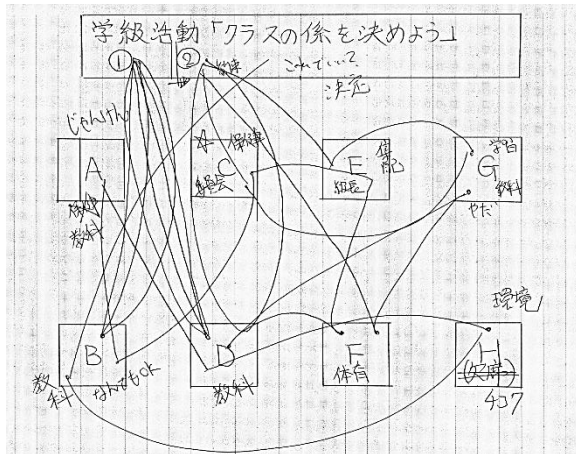 学級活動「クラスの係を決めよう」
① ②
これでいい?
決定
じゃんけん
A
保健
教科
☆
C
保健
E
組長
心配
G
学習
教科
やだ
B
教科
なんでもok
D
教科
F
体育
環境
H
(欠席)
チコク